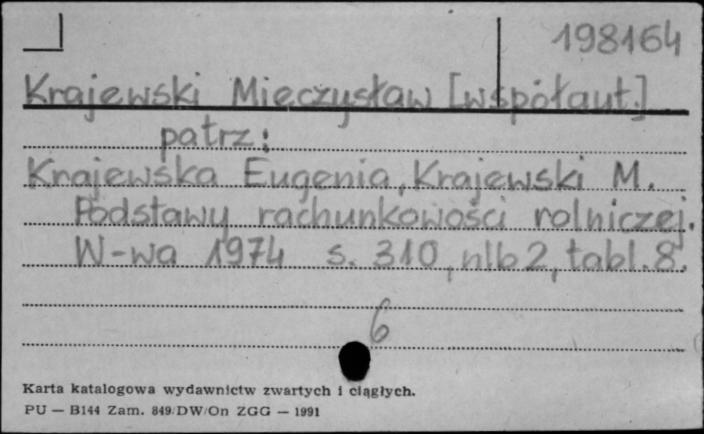 198164
Krajewski Mieczysław [współaut.]
patrz:
Krajewska Eugenia, Krajewski M.
Podstawy rachunkowości rolniczej.
W-wa 1974 s. 310, nlb 2, tabl. 8.
6
Karta katalogowa wydawnictw zwartych i ciągłych.
PU — B144 Zam. 849/DW/On ZGG — 1991